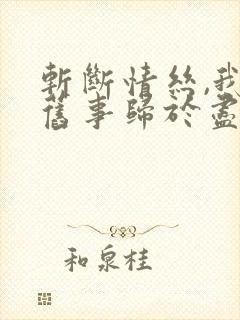 斬斷情絲,我
舊事歸於盡
和泉桂